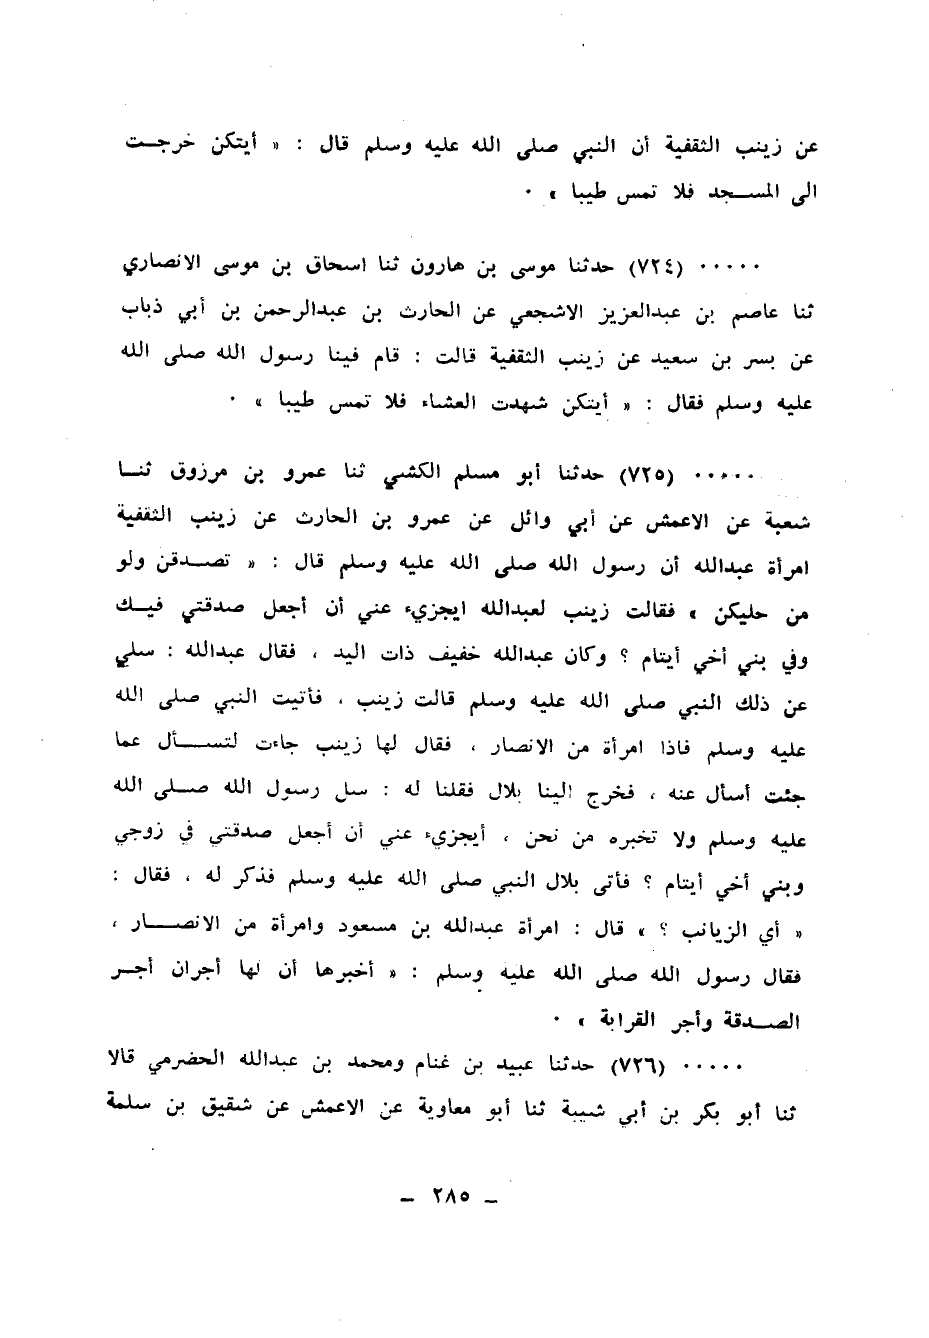 عن زينب الثقفية أن النبي صلى الله عليه وسلم قال : « أيتكن خرجــت
الى المســجد فلا تمس طيبا » ٠
٠٠٠٠٠ (٧٢٤) حدثنا موسى بن هارون ثنا اسحاق بن موسى الانصاري
ثنا عاصم بن عبدالعزيز الاشجعي عن الحارث بن عبدالرحمن بن أبي ذباب
عن بسر بن سعيد عن زينب الثقفية قالت : قام فينا رسول الله صلى الله
عليه وسلم فقال : « أيتكن شهدت العشاء فلا تمس طيبا » ٠
٠٠٠٠٠ (٧٢٥) حدثنا أبو مسلم الكشي ثنا عمرو بن مرزوق ثنــا
شعبة عن الاعمش عن أبي وائل عن عمرو بن الحارث عن زينب الثقفية
امرأة عبدالله أن رسول الله صلى الله عليه وسلم قال : « تصــدقن ولو
من حليكن » فقالت زينب لعبدالله ايجزيء عني أن أجعل صدقتي فيــك
وفي بني أخي أيتام ؟ وكان عبدالله خفيف ذات اليد ، فقال عبدالله : سلي
عن ذلك النبي صلى الله عليه وسلم قالت زينب ، فأتيت النبي صلى الله
عليه وسلم فاذا امرأة من الانصار ، فقال لها زينب جاءت لتســأل عما
جئت أسأل عنه ، فخرج الينا بلال فقلنا له : سل رسول الله صــلى الله
عليه وسلم ولا تخبره من نحن ، أيجزيء عني أن أجعل صدقتي في زوجي
وبني أخي أيتام ؟ فأتى بلال النبي صلى الله عليه وسلم فذكر له ، فقال :
« أي الزيانب ؟ » قال : امرأة عبدالله بن مسعود وامرأة من الانصــار ،
فقال رسول الله صلى الله عليه وسلم : « أخبرها أن لها أجران أجــر
الصــدقة وأجر القرابة » ٠
٠٠٠٠٠ (٧٢٦) حدثنا عبيد بن غنام ومحمد بن عبدالله الحضرمي قالا
ثنا أبو بكر بن أبي شيبة ثنا أبو معاوية عن الاعمش عن شقيق بن سلمة
– ٢٨٥ –